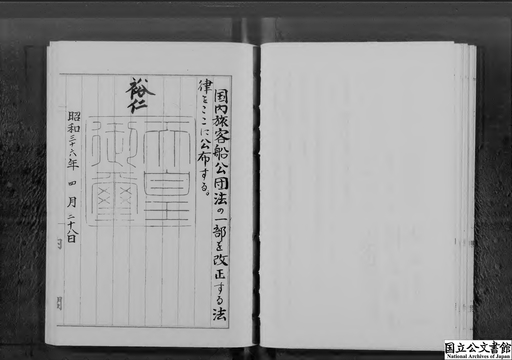 国内旅客船公団法の一部を改正する法
律をここに公布する。
裕仁
天皇
御璽
昭和三十六年四月二十八日
国立公文書館
National Archives of Japan